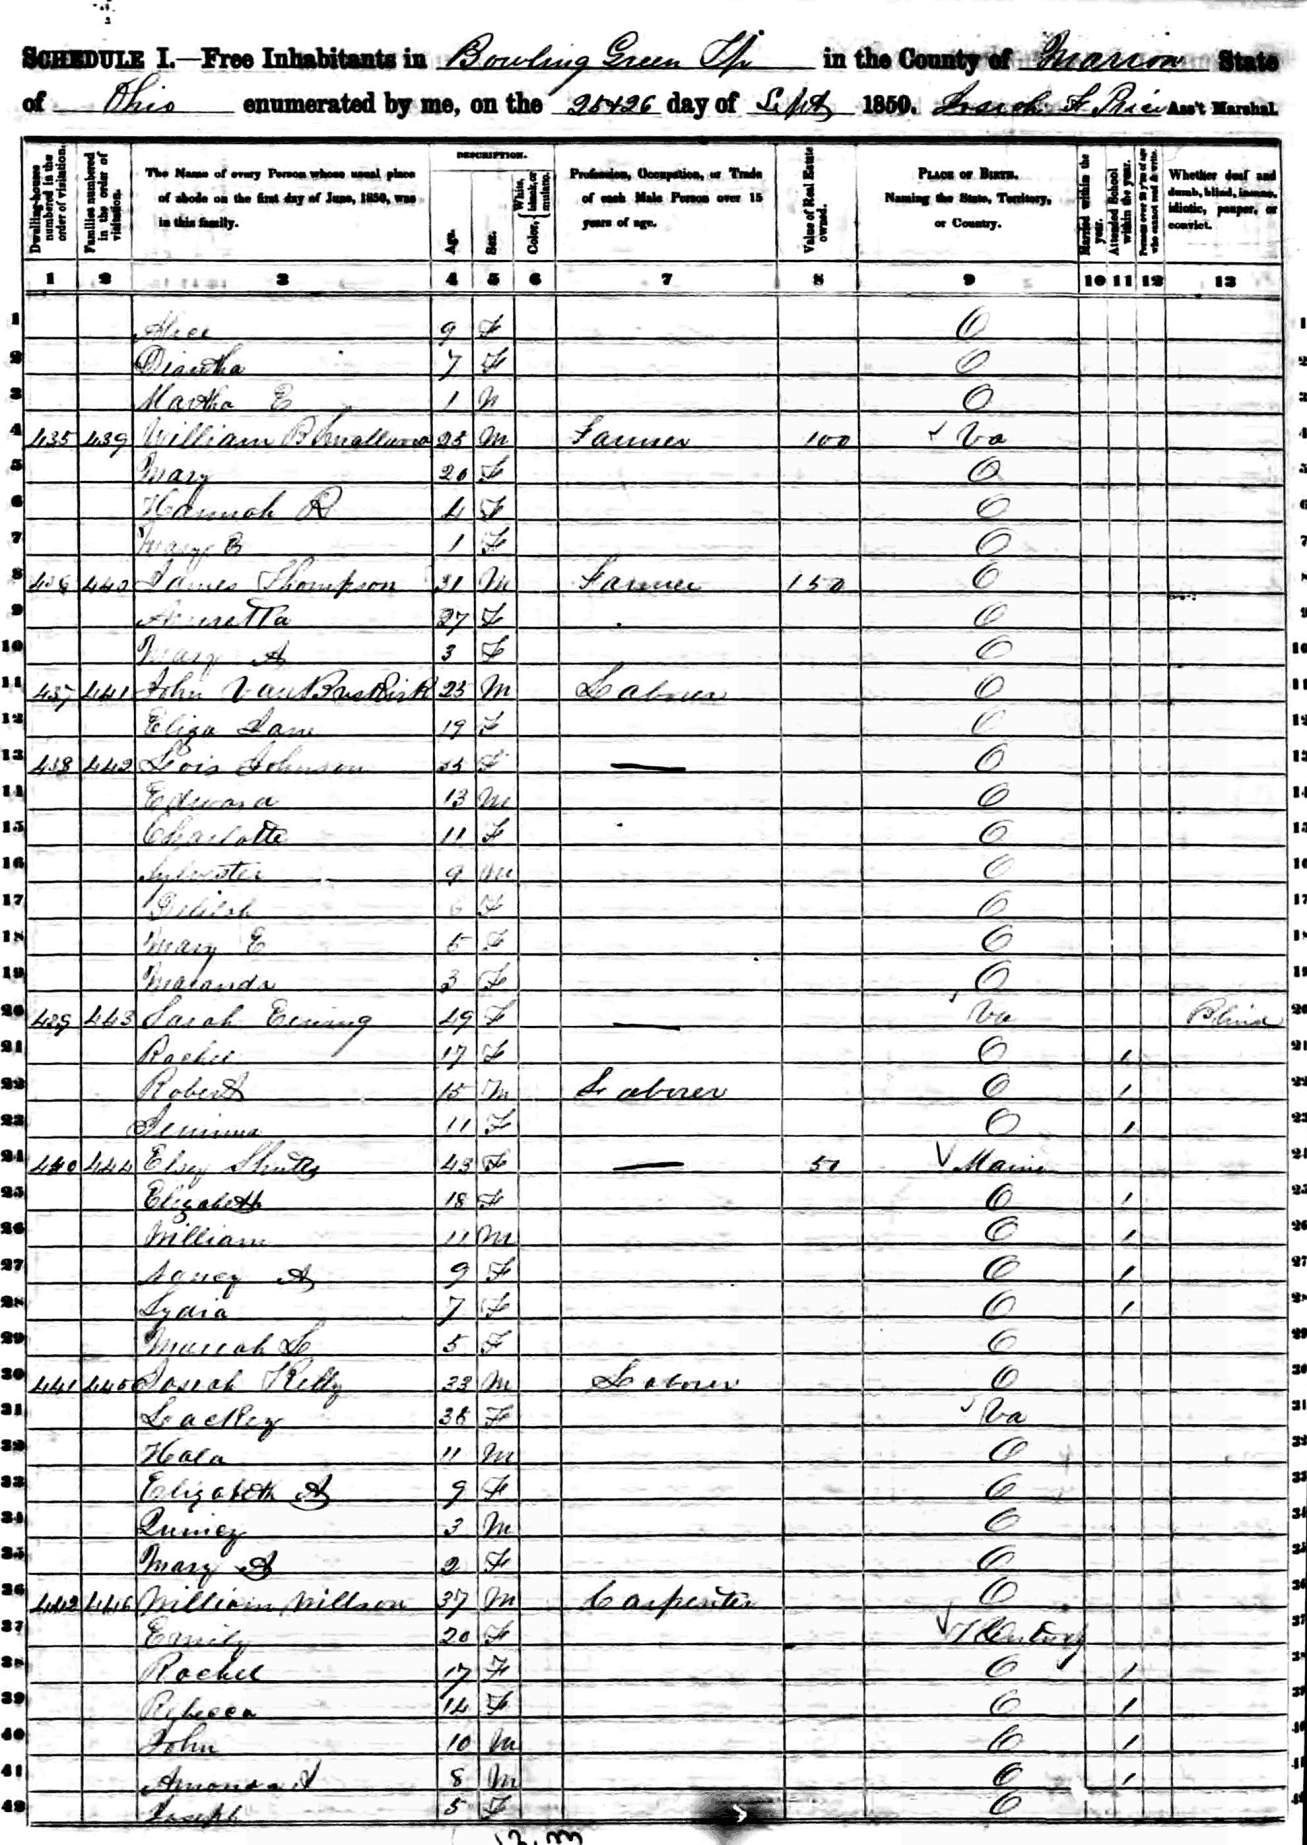 SCHEDULE I.—Free Inhabitants in Bowling Green Tp in the County of Marion State
of Ohio enumerated by me, on the 25&26 day of Sept 1850. Price Ass't Marshal.
Dwelling-houses numbered in the order of visitation.
Families numbered in the order of visitation.
The Name of every Person whose usual place of abode on the first day of June, 1850, was in this family.
DESCRIPTION.
Age.
Sex.
Color, { White, black, or mulatto.
Profession, Occupation, or Trade of each Male Person over 15 years of age.
Value of Real Estate owned.
PLACE OF BIRTH. Naming the State, Territory, or Country.
Married within the year.
Attended School within the year.
Persons over 20 y'rs of age who cannot read & write.
Whether deaf and dumb, blind, insane, idiotic, pauper, or convict.
1 2 3 4 5 6 7 8 9 10 11 12 13
1 Alice 9 F O 1
2 Diantha 7 F O 2
3 Martha E 1 O 3
4 435 439 William B 25 M Farmer 100 Va 4
5 Mary 20 F O 5
6 Hannah R 4 F O 6
7 Mary B 1 F O 7
8 436 440 James Thompson 31 M Farmer 150 O 8
9 27 F O 9
10 Mary A 3 F O 10
11 437 441 John VanBuskirk 25 M Laborer O 11
12 Eliza Jane 19 F O 12
13 438 442 Lois Johnson F — O 13
14 Edward 13 M O 14
15 Charlotte 11 F O 15
16 Sylvester 9 M O 16
17 Delilah 6 F O 17
18 Mary E 5 F O 18
19 Maranda 3 F O 19
20 439 443 Sarah 49 F — Va Blind 20
21 Rachel 17 F O 1 21
22 Robert 15 M Laborer O 1 22
23 Jemima 11 F O 1 23
24 440 444 Elsy 43 F — 50 Maine 24
25 Elizabeth 18 F O 1 25
26 William 11 M O 1 26
27 Nancy A 9 F O 1 27
28 Lydia 7 F O 1 28
29 Mariah L 5 F O 29
30 441 445 Josiah Kelly 33 M Laborer O 30
31 38 F Va 31
32 11 M O 32
33 Elizabeth A 9 F O 33
34 Quincy 3 M O 34
35 Mary A 2 F O 35
36 442 446 William Willson 37 M Carpenter O 36
37 Emily 20 F Kentucky 37
38 Rachel 17 F O 1
39 Rebecca 14 F O 1 39
40 John 10 M O 1 40
41 Amonia 8 M O 1 41
42 Joseph 5 F O